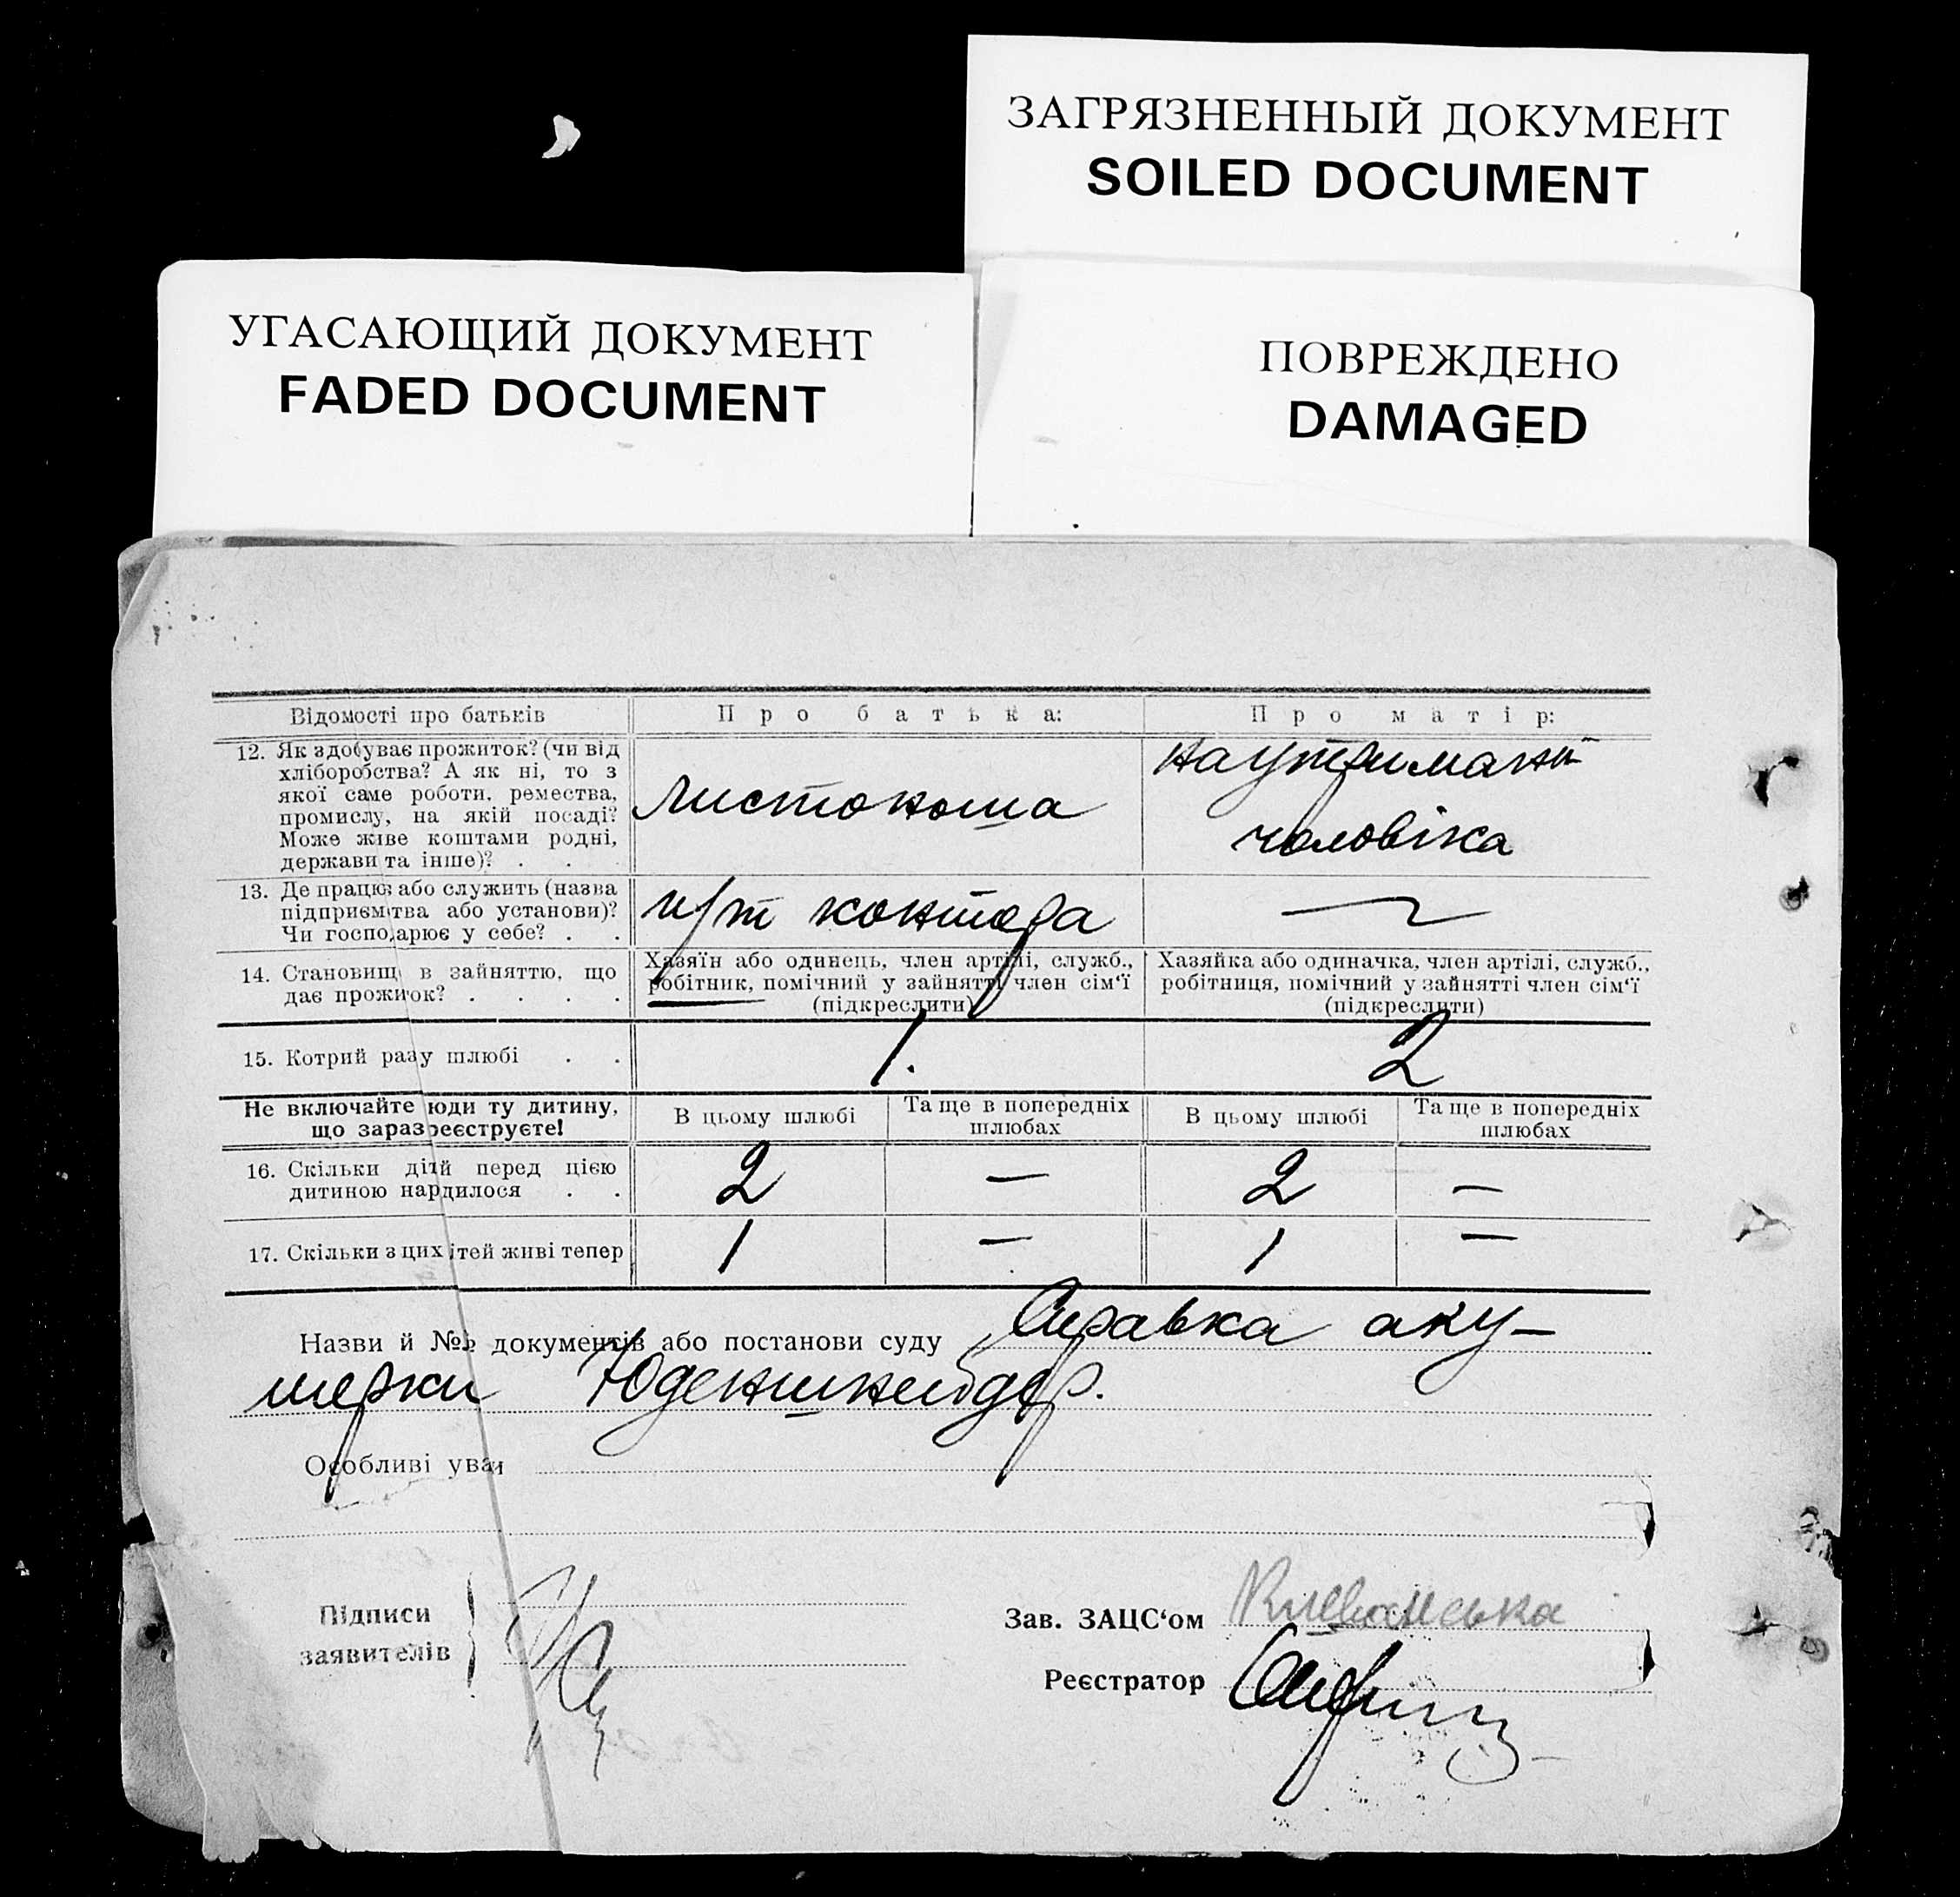 ЗАГРЯЗНЕННЫЙ ДОКУМЕНТ
SOILED DOCUMENT
УГАСАЮЩИЙ ДОКУМЕНТ
FADED DOCUMENT
ПОВРЕЖДЕНО
DAMAGED
Відомості про батьків
Про батька:
Про матір:
12. Як здобуває прожиток? (чи від
хліборобства? А як ні, то з
якої саме роботи, ремества,
промислу, на якій посаді?
Може живе коштами родні,
держави та інше)? . .
Листоноша
на утриманні
чоловіка
13. Де працює або служить (назва
підприємтва або установи)?
Чи господарює у себе? . .
п/т контора
14. Становище в зайняттю, що
дає прожиток? . . . .
Хазяїн або одинець, член артілі, служб.,
робітник, помічний у зайнятті член сім‘ї
(підкреслити)
Хазяйка або одиначка, член артілі, служб.,
робітниця, помічний у зайнятті член сім‘ї
(підкреслити)
15. Котрий раз у шлюбі . .
1.
2
Не включайте сюди ту дитину,
що зараз реєструєте!
В цьому шлюбі
Та ще в попередніх
шлюбах
В цьому шлюбі
Та ще в попередніх
шлюбах
16. Скільки дітей перед цією
дитиною народилося . .
2
—
2
—
17. Скільки з цих дітей живі тепер
1
—
1
—
Назви й №№ документів або постанови суду Справка аку-
шерки Юденшнейдер.
Особливі уваги
Підписи
заявителів
Зав. ЗАЦС‘ом
Реєстратор